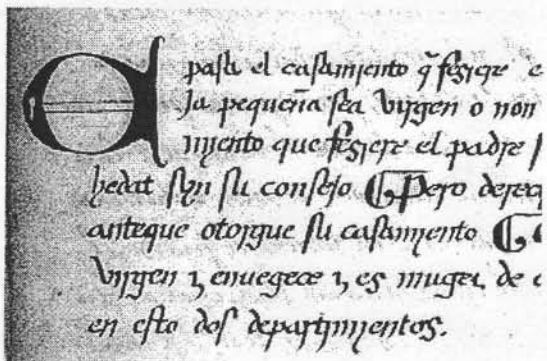 pasa el casamiento q̃ fiziere e
ja pequeña sea virgen o non
miento que fiziere el padre s
hedat syn su consejo ¶ Pero derec
anteque otorgue su casamiento ¶
Virgen ⁊ enuegece ⁊ es muger de
en esto dos departimientos.